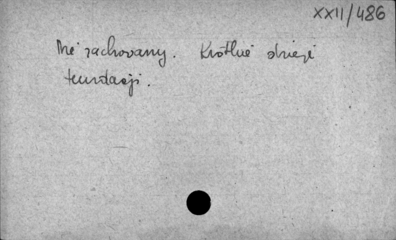 XXII/486
Nie zachowany. Krótkie dzieje
fundacji.